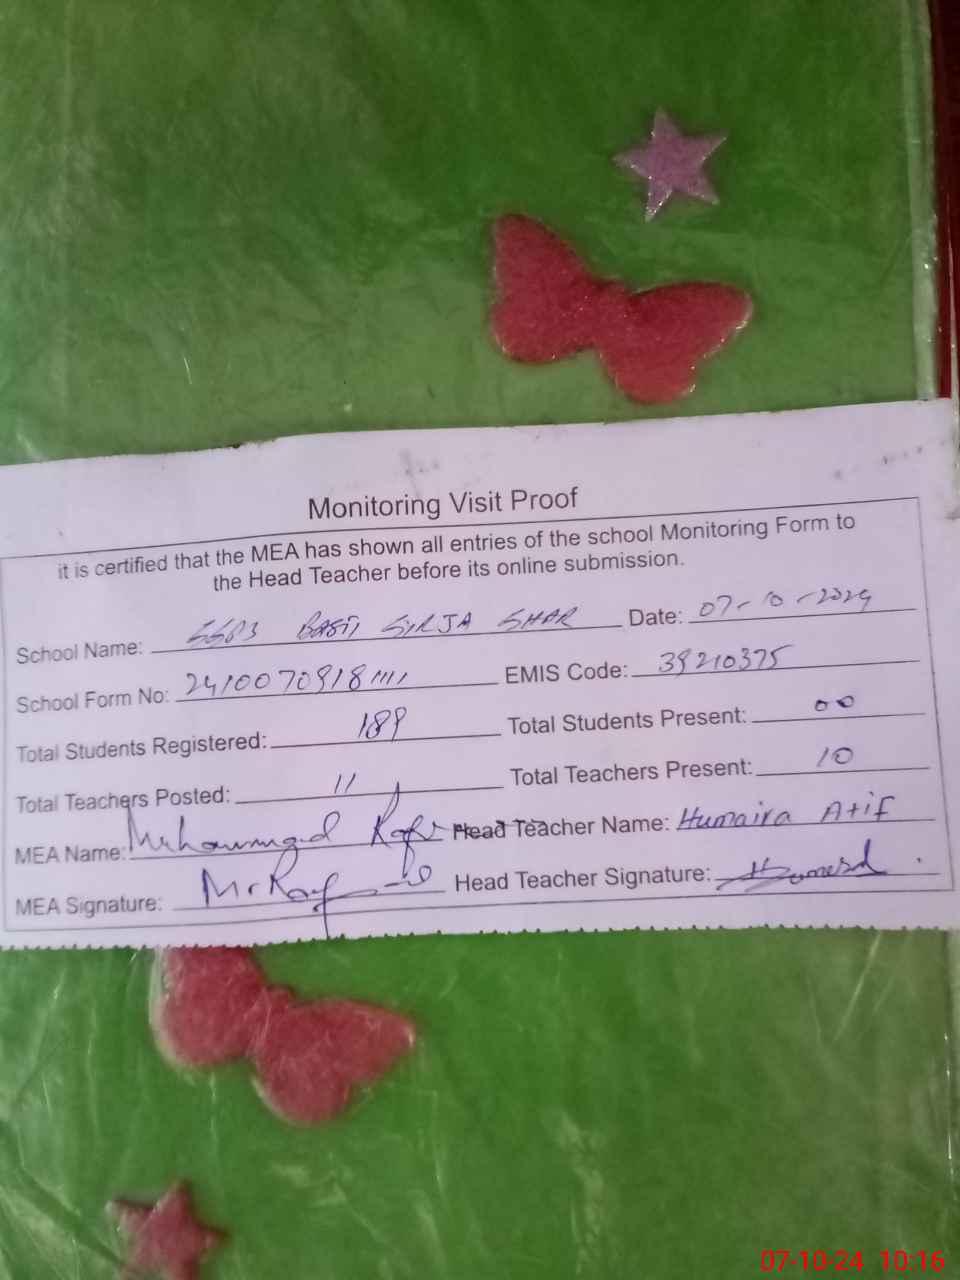 Monitoring Visit Proof
it is certified that the MEA has shown all entries of the school Monitoring Form to
the Head Teacher before its online submission.
School Name: SHAR Date: 07-10-2024
School Form No: EMIS Code: 39210375
Total Students Registered: 189 Total Students Present: 00
Total Teachers Posted: 11 Total Teachers Present: 10
MEA Name: Muhammad Head Teacher Name: Humaira Atif
MEA Signature: Head Teacher Signature:
07-10-24 10:16